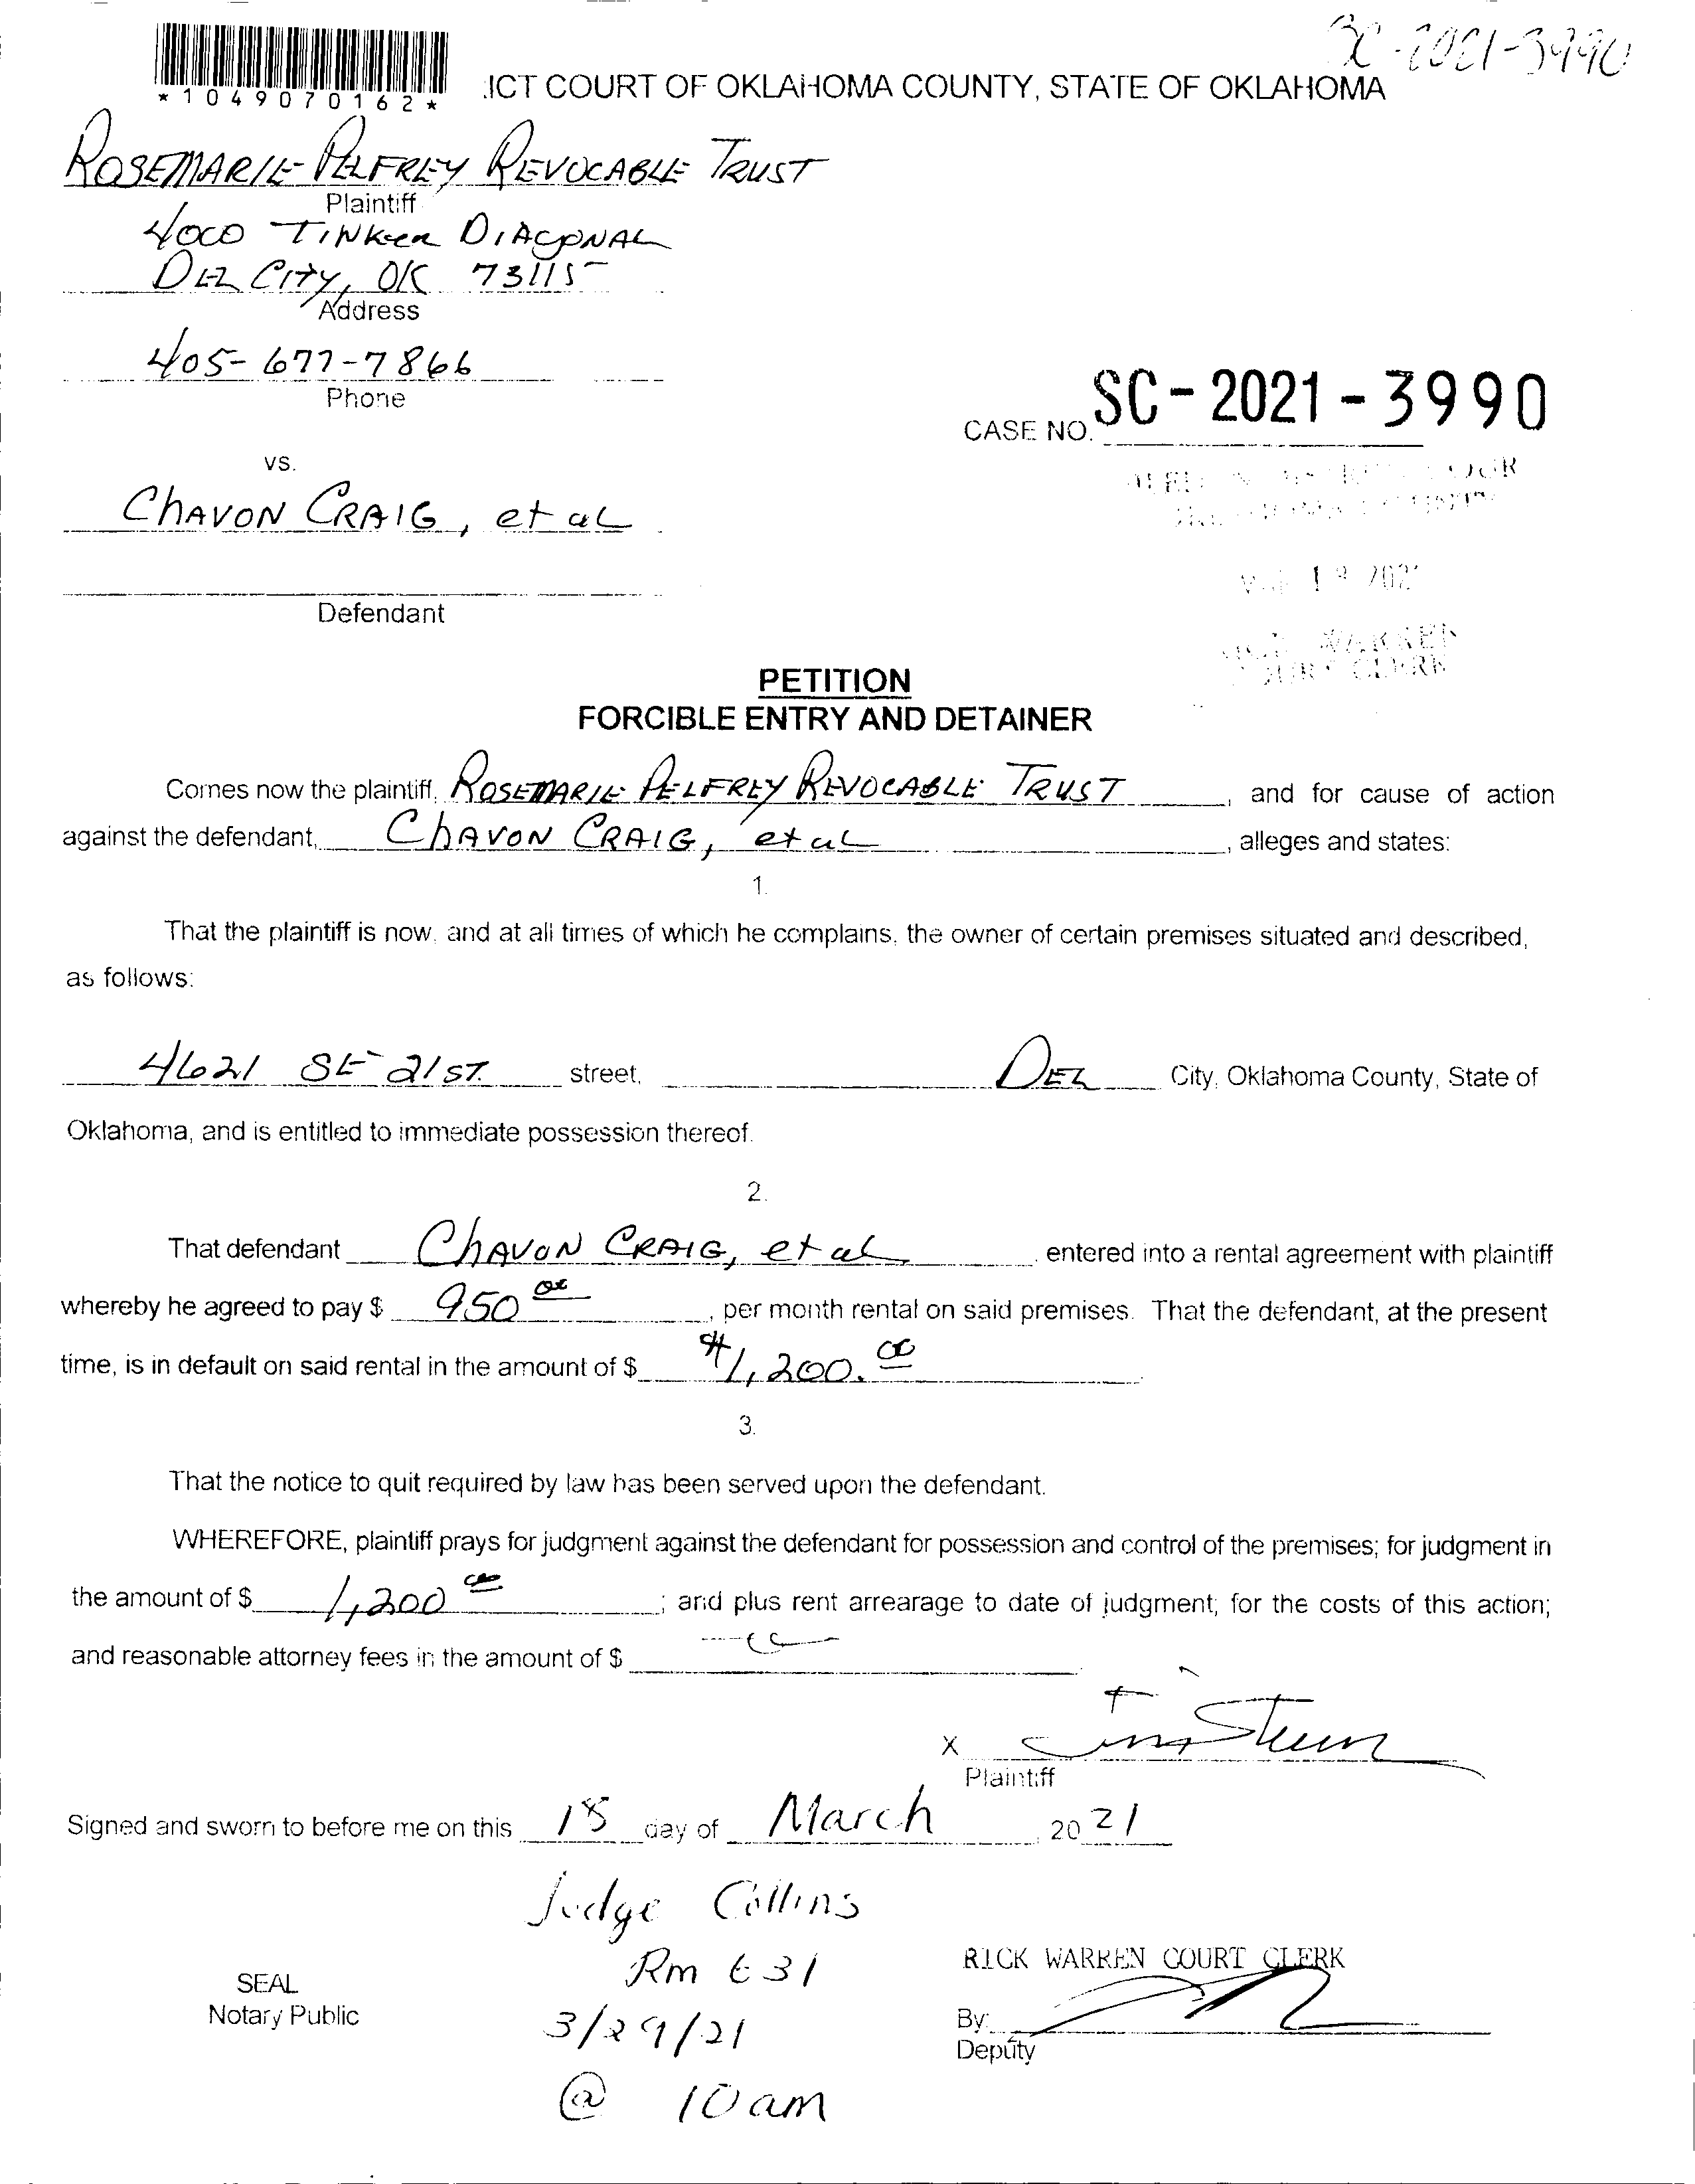 SC-2021-3990
*1049070162*
ICT COURT OF OKLAHOMA COUNTY, STATE OF OKLAHOMA
ROSEMARIE PELFREY REVOCABLE TRUST
Plaintiff
4000 TINKER DIAGONAL
DEL CITY, OK 73115
Address
405-677-7866
Phone
CASE NO. SC-2021-3990
vs.
CHAVON CRAIG, et al
Defendant
WARREN
CLERK
PETITION
FORCIBLE ENTRY AND DETAINER
Comes now the plaintiff, ROSEMARIE PELFREY REVOCABLE TRUST, and for cause of action
against the defendant, CHAVON CRAIG, et al, alleges and states:
1.
That the plaintiff is now, and at all times of which he complains, the owner of certain premises situated and described,
as follows:
4621 SE 21ST. street, DEL City, Oklahoma County, State of
Oklahoma, and is entitled to immediate possession thereof.
2.
That defendant CHAVON CRAIG, et al, entered into a rental agreement with plaintiff
whereby he agreed to pay $ 950 00, per month rental on said premises. That the defendant, at the present
time, is in default on said rental in the amount of $ $1,200.00.
3.
That the notice to quit required by law has been served upon the defendant.
WHEREFORE, plaintiff prays for judgment against the defendant for possession and control of the premises; for judgment in
the amount of $ 1,200 00; and plus rent arrearage to date of judgment; for the costs of this action;
and reasonable attorney fees in the amount of $
X
Plaintiff
Signed and sworn to before me on this 18 day of March, 2021
Judge Collins
Rm 631
3/29/21
@ 10am
SEAL
Notary Public
RICK WARREN COURT CLERK
By:
Deputy